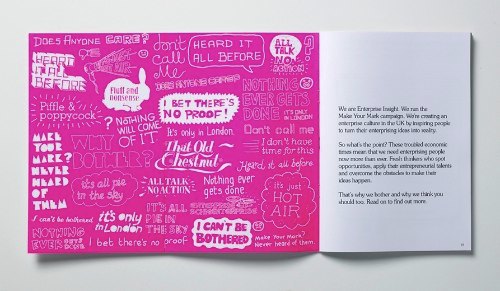 DOES ANYONE CARE?
don't
call
Me
HEARD IT
ALL BEFORE
ALL
TALK
NO
ACTION
?
HEARD
IT ALL
BEFORE
HOT AIR
Fluff and
nonsense
DOES ANYONE CARE?
NOTHING
EVER GETS
DONE
IT'S
ONLY IN
LONDON
Piffle &
poppycock
?
NOTHING
WILL
COME
OF IT
I BET THERE'S
NO PROOF!
It's only in London.
Don't call me
I don't have
time for this
MAKE
YOUR
MARK?
NEVER
HEARD
OF
THEM
WHY
BOTHER?
That Old
Chestnut
Heard it all before.
it's all pie
in the sky
ALL TALK
NO ACTION
Nothing ever
gets done
ENTERPRISE
SCHMENTERPRISE
it's just
HOT
AIR
i can't be bothered
it's only
in London
IT'S ALL
PIE IN
THE SKY
I CAN'T BE
BOTHERED
NOTHING
EVER GETS
DONE
I bet there's no proof
Make Your Mark?
Never heard of them.
We are Enterprise Insight. We run the
Make Your Mark campaign. We're creating an
enterprise culture in the UK by inspiring people
to turn their enterprising ideas into reality.
So what's the point? These troubled economic
times mean that we need enterprising people
now more than ever. Fresh thinkers who spot
opportunities, apply their entrepreneurial talents
and overcome the obstacles to make their
ideas happen.
That's why we bother and why we think you
should too. Read on to find out more.